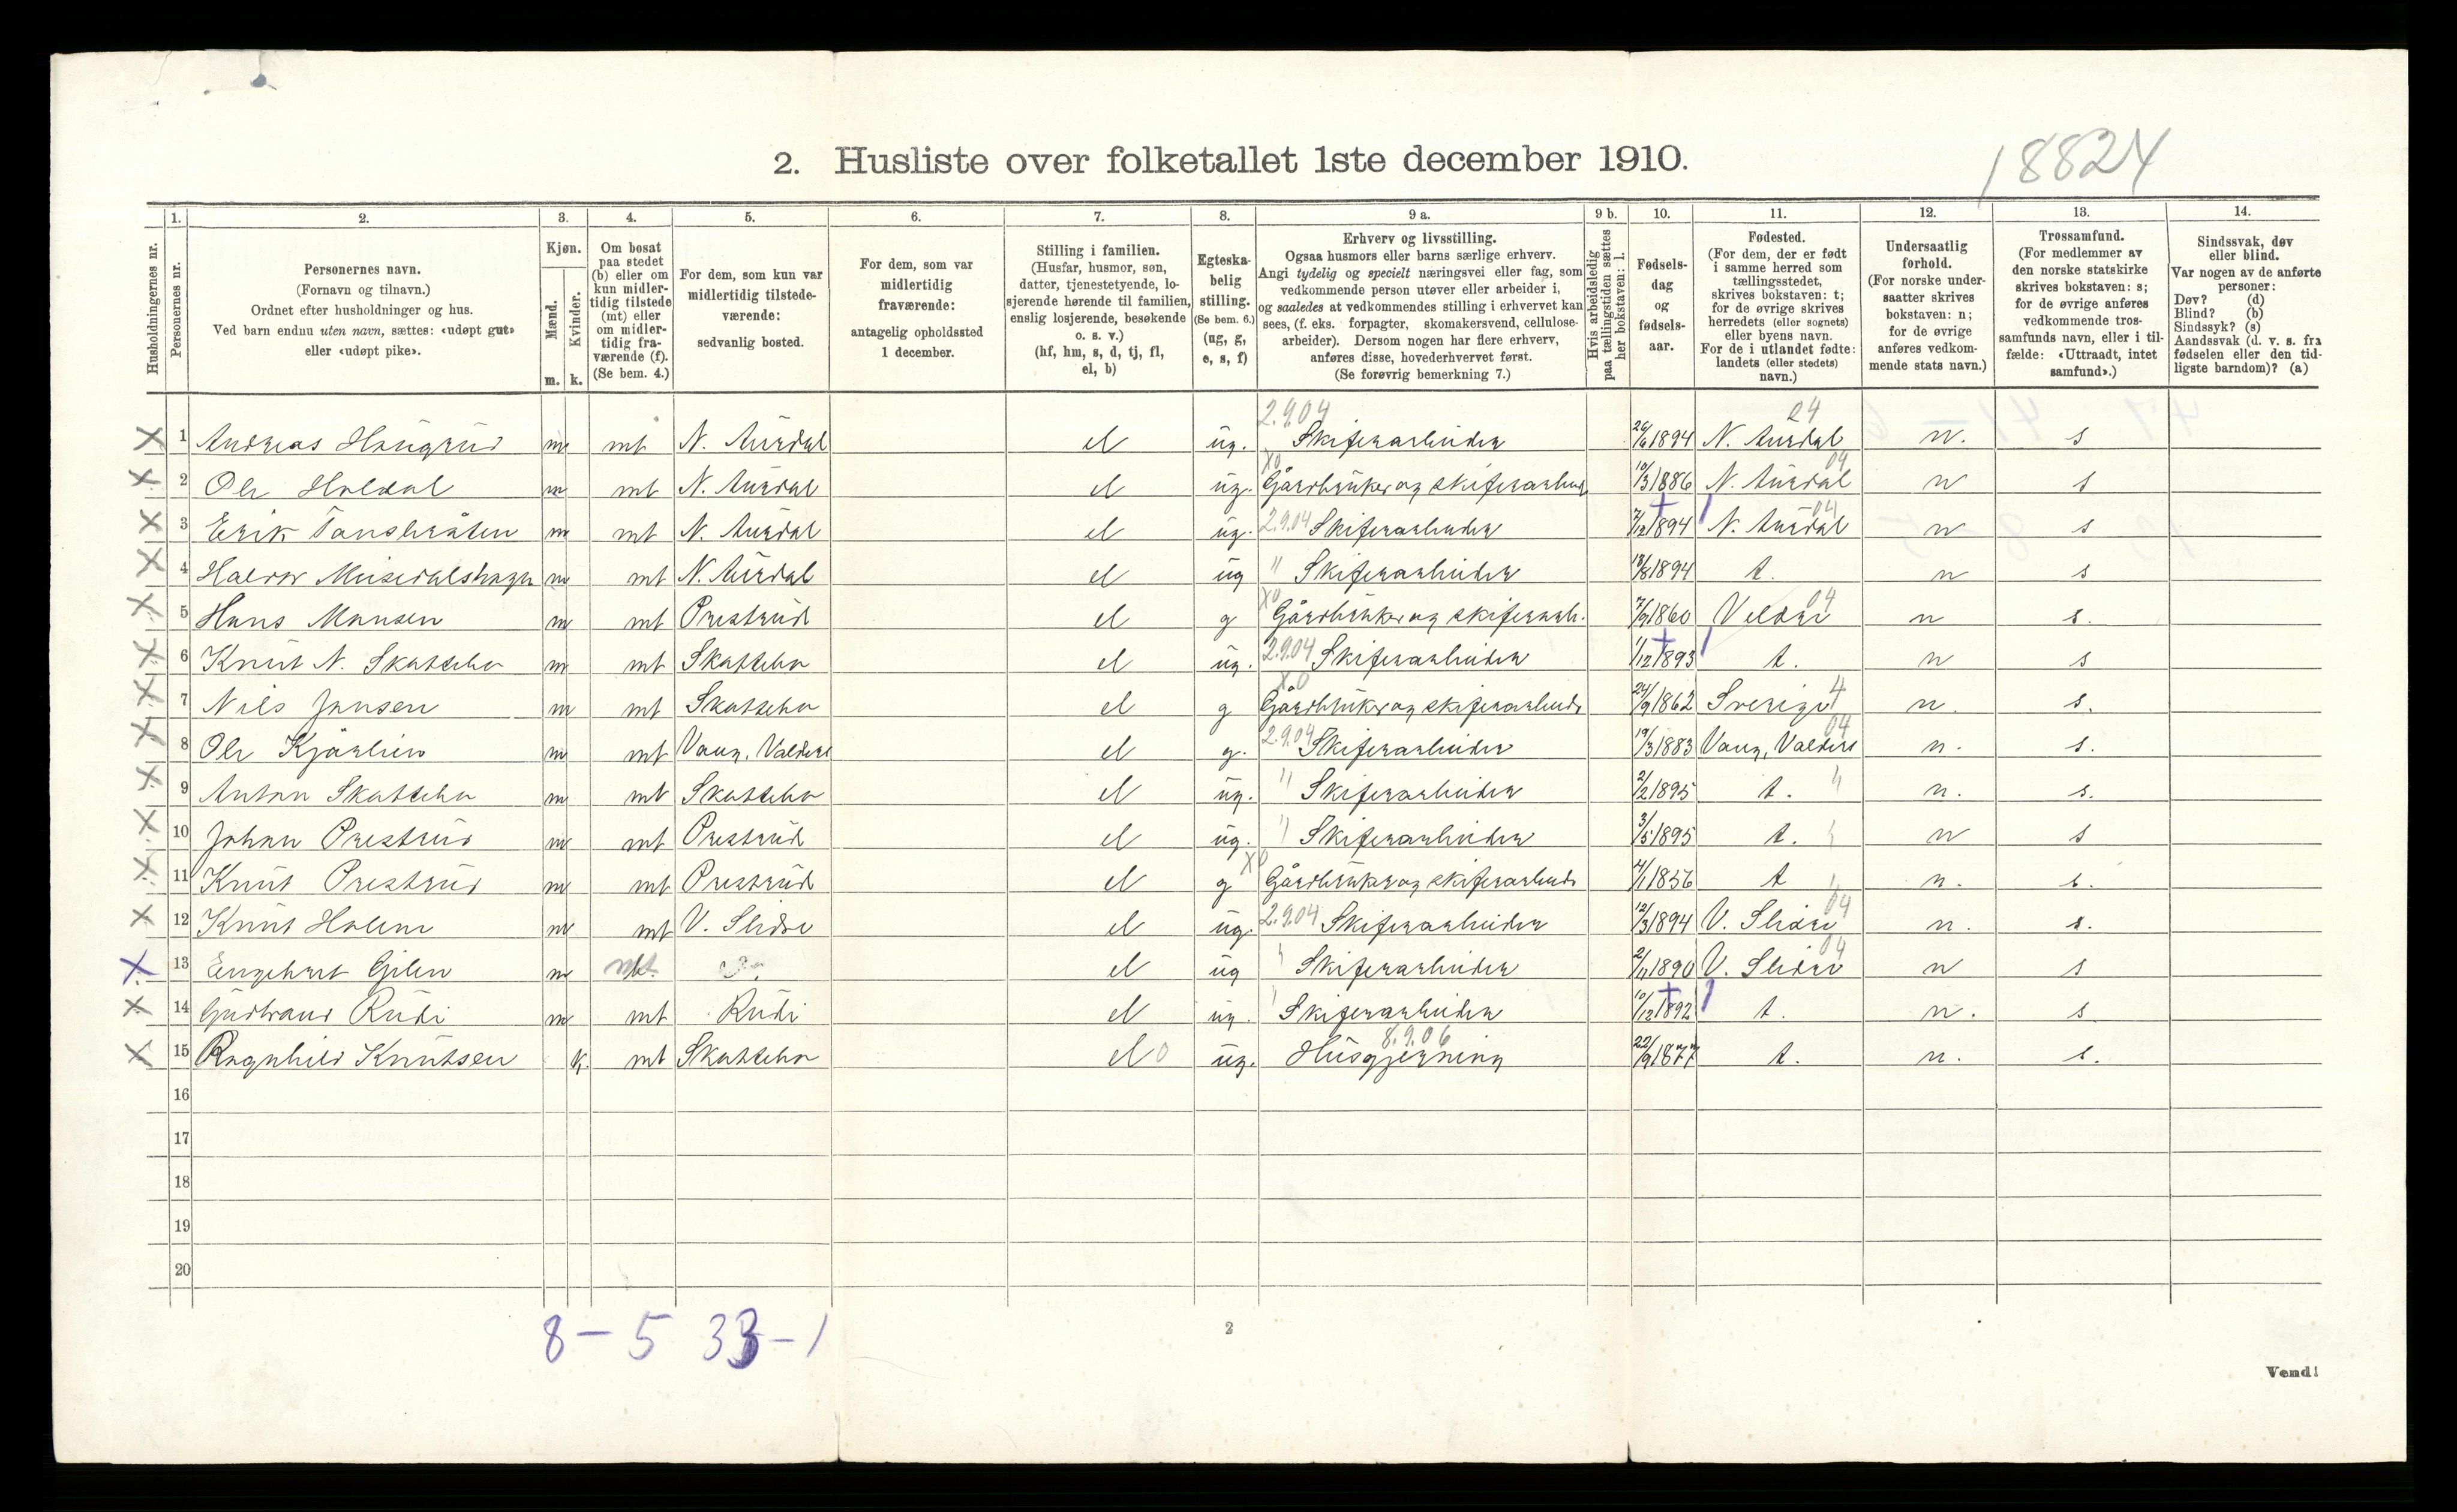 2. Husliste over folketallet 1ste december 1910.
18824
Husholdningernes nr.
1. Personernes nr.
2. Personernes navn. (Fornavn og tilnavn.) Ordnet efter husholdninger og hus. Ved barn endnu uten navn, sættes: «udøpt gut» eller «udøpt pike».
3. Kjøn. Mænd. m. Kvinder. k.
4. Om bosat paa stedet (b) eller om kun midlertidig tilstede (mt) eller om midlertidig fraværende (f). (Se bem. 4.)
5. For dem, som kun var midlertidig tilstedeværende: sedvanlig bosted.
6. For dem, som var midlertidig fraværende: antagelig opholdssted 1 december.
7. Stilling i familien. (Husfar, husmor, søn, datter, tjenestetyende, losjerende hørende til familien, enslig losjerende, besøkende o. s. v.) (hf, hm, s, d, tj, fl, el, b)
8. Egteskabelig stilling. (Se bem. 6.) (ug, g, e, s, f)
9 a. Erhverv og livsstilling. Ogsaa husmors eller barns særlige erhverv. Angi tydelig og specielt næringsvei eller fag, som vedkommende person utøver eller arbeider i, og saaledes at vedkommendes stilling i erhvervet kan sees, (f. eks. forpagter, skomakersvend, cellulosearbeider). Dersom nogen har flere erhverv, anføres disse, hovederhvervet først. (Se forøvrig bemerkning 7.)
9 b. Hvis arbeidsledig paa tællingstiden sættes her bokstaven: l.
10. Fødselsdag og fødselsaar.
11. Fødested. (For dem, der er født i samme herred som tællingsstedet, skrives bokstaven: t; for de øvrige skrives herredets (eller sognets) eller byens navn. For de i utlandet fødte: landets (eller stedets) navn.)
12. Undersaatlig forhold. (For norske undersaatter skrives bokstaven: n; for de øvrige anføres vedkommende stats navn.)
13. Trossamfund. (For medlemmer av den norske statskirke skrives bokstaven: s; for de øvrige anføres vedkommende trossamfunds navn, eller i tilfælde: «Uttraadt, intet samfund».)
14. Sindssvak, døv eller blind. Var nogen av de anførte personer: Døv? (d) Blind? (b) Sindssyk? (s) Aandssvak (d. v. s. fra fødselen eller den tidligste barndom)? (a)
2.9.04 04
X 1 Andreas Haugrud m mt N. Aurdal el ug. Skiferarbeider 26/6 1894 N. Aurdal n. s
X 2 Ole Haldal m mt N. Aurdal el ug. X0 Gårdbruker og skiferarbeid. 10/3 1886 N. Aurdal 04 n s
X 3 Erik Tansbråten m mt N. Aurdal el ug. 2.9.04 Skiferarbeider 7/12 1894 N. Aurdal 04 n s
X 4 Halvor m mt N. Aurdal el ug " Skiferarbeider 13/8 1894 t. n s
X 5 Hans Monsen m mt Prestrud el g X0 Gårdbruker og skiferarb. 7/9 1860 04 n s.
X 6 Knut N. Skattebo m mt Skattebo el ug. 2.9.04 Skiferarbeider 1/12 1893 t. n s
X 7 Nils Jansen m mt Skattebo el g X0 Gårdbruker og skiferarbeid. 24/9 1862 Sverige 4 n. s.
X 8 Ole m mt Vang, Valders el g. 2.9.04 Skiferarbeider 19/3 1883 Vang, Valders 04 n. s.
X 9 Anton Skattebo m mt Skattebo el ug. " Skiferarbeider 2/2 1895 t. n. s.
X 10 Johan Prestrud m mt Prestrud el ug. " Skiferarbeider 3/5 1895 t. n s
X 11 Knut Prestrud m mt Prestrud el g X0 Gårdbruker og skiferarbeid. 4/1 1856 t n. s.
X 12 Knut Halen m mt V. Slidre el ug. 2.9.04 Skiferarbeider 12/3 1894 V. Slidre 04 n. s.
X 13 Engebret Gilen m mt. el ug " Skiferarbeider 2/11 1890 V. Slidre 04 n s
X 14 Gudbrand Rudi m mt Rudi el ug. " Skiferarbeider 10/12 1892 t. n. s
X 15 Ragnhild Knutsen k. mt Skattebo el 0 ug. Husgjerning 8.9.06 22/9 1877 t. n. s.
16
17
18
19
20
8 - 5 33 - 1
2
Vend!